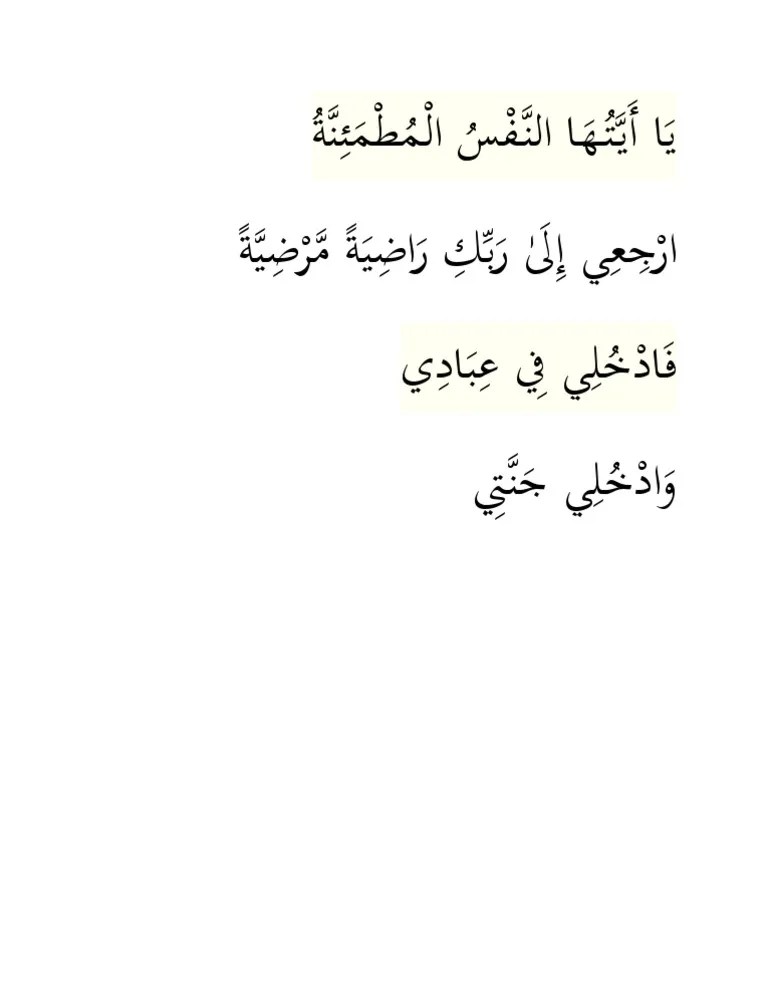 يَا أَيَّتُهَا النَّفْسُ الْمُطْمَئِنَّةُ
ارْجِعِي إِلَىٰ رَبِّكِ رَاضِيَةً مَّرْضِيَّةً
فَادْخُلِي فِي عِبَادِي
وَادْخُلِي جَنَّتِي